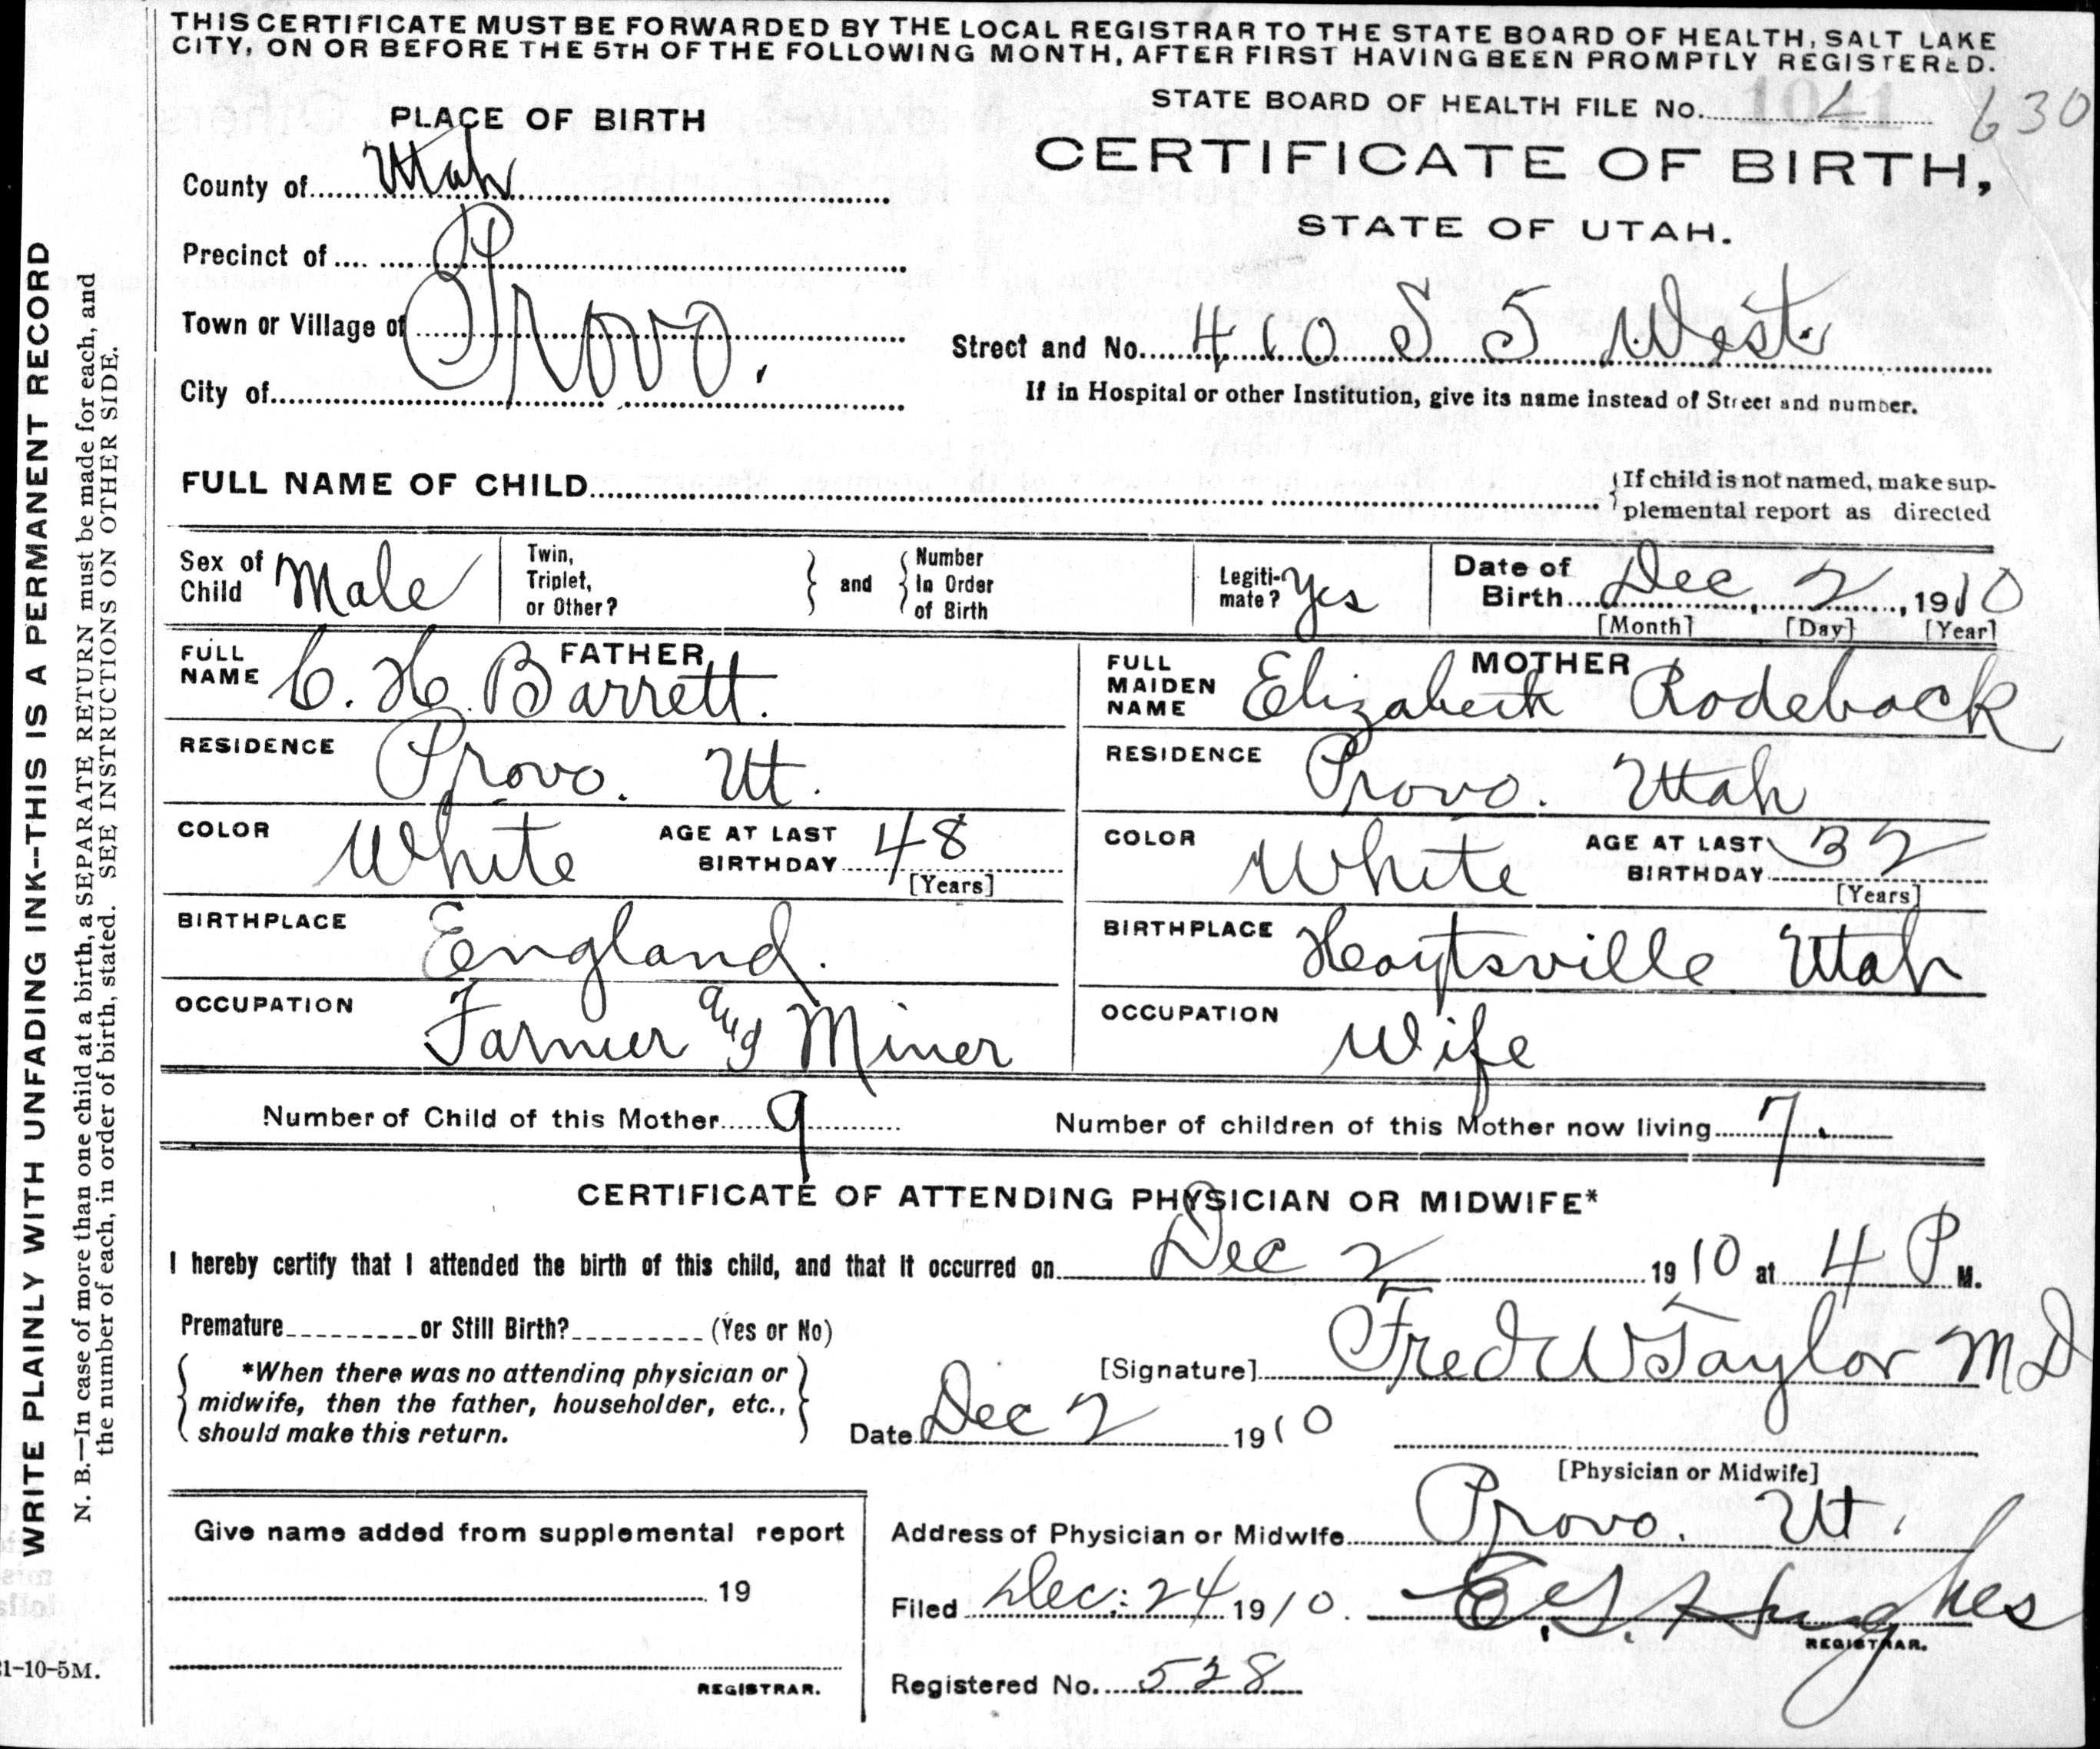 THIS CERTIFICATE MUST BE FORWARDED BY THE LOCAL REGISTRAR TO THE STATE BOARD OF HEALTH, SALT LAKE
CITY, ON OR BEFORE THE 5TH OF THE FOLLOWING MONTH, AFTER FIRST HAVING BEEN PROMPTLY REGISTERED.
STATE BOARD OF HEALTH FILE No. 1041 630
PLACE OF BIRTH
CERTIFICATE OF BIRTH,
STATE OF UTAH.
County of Utah
Precinct of
Town or Village of Provo.
City of
Street and No. 410 S 5 West
If in Hospital or other Institution, give its name instead of Street and number.
FULL NAME OF CHILD
If child is not named, make sup-
plemental report as directed
Sex of Child Male
Twin, Triplet, or Other? and Number In Order of Birth
Legiti-mate? Yes
Date of Birth Dec 2, 1910
[Month] [Day] [Year]
FATHER
FULL NAME C. H. Barrett.
RESIDENCE Provo. Ut.
COLOR White AGE AT LAST BIRTHDAY 48
[Years]
BIRTHPLACE England.
OCCUPATION Farmer and Miner
MOTHER
FULL MAIDEN NAME Elizabeth Rodeback
RESIDENCE Provo. Utah
COLOR White AGE AT LAST BIRTHDAY 32
[Years]
BIRTHPLACE Hoytsville Utah
OCCUPATION Wife
Number of Child of this Mother 9 Number of children of this Mother now living 7.
CERTIFICATE OF ATTENDING PHYSICIAN OR MIDWIFE*
I hereby certify that I attended the birth of this child, and that it occurred on Dec 2 1910 at 4 P M.
Premature or Still Birth? (Yes or No)
*When there was no attending physician or
midwife, then the father, householder, etc.,
should make this return.
[Signature] Fred W Taylor MD
Date Dec 2 1910
[Physician or Midwife]
Give name added from supplemental report
19
REGISTRAR.
Address of Physician or Midwife Provo. Ut.
Filed Dec: 24 1910. E. G. Hughes
REGISTRAR.
Registered No. 528
WRITE PLAINLY WITH UNFADING INK--THIS IS A PERMANENT RECORD
N. B.—In case of more than one child at a birth, a SEPARATE RETURN must be made for each, and
the number of each, in order of birth, stated. SEE INSTRUCTIONS ON OTHER SIDE.
1-10-5M.